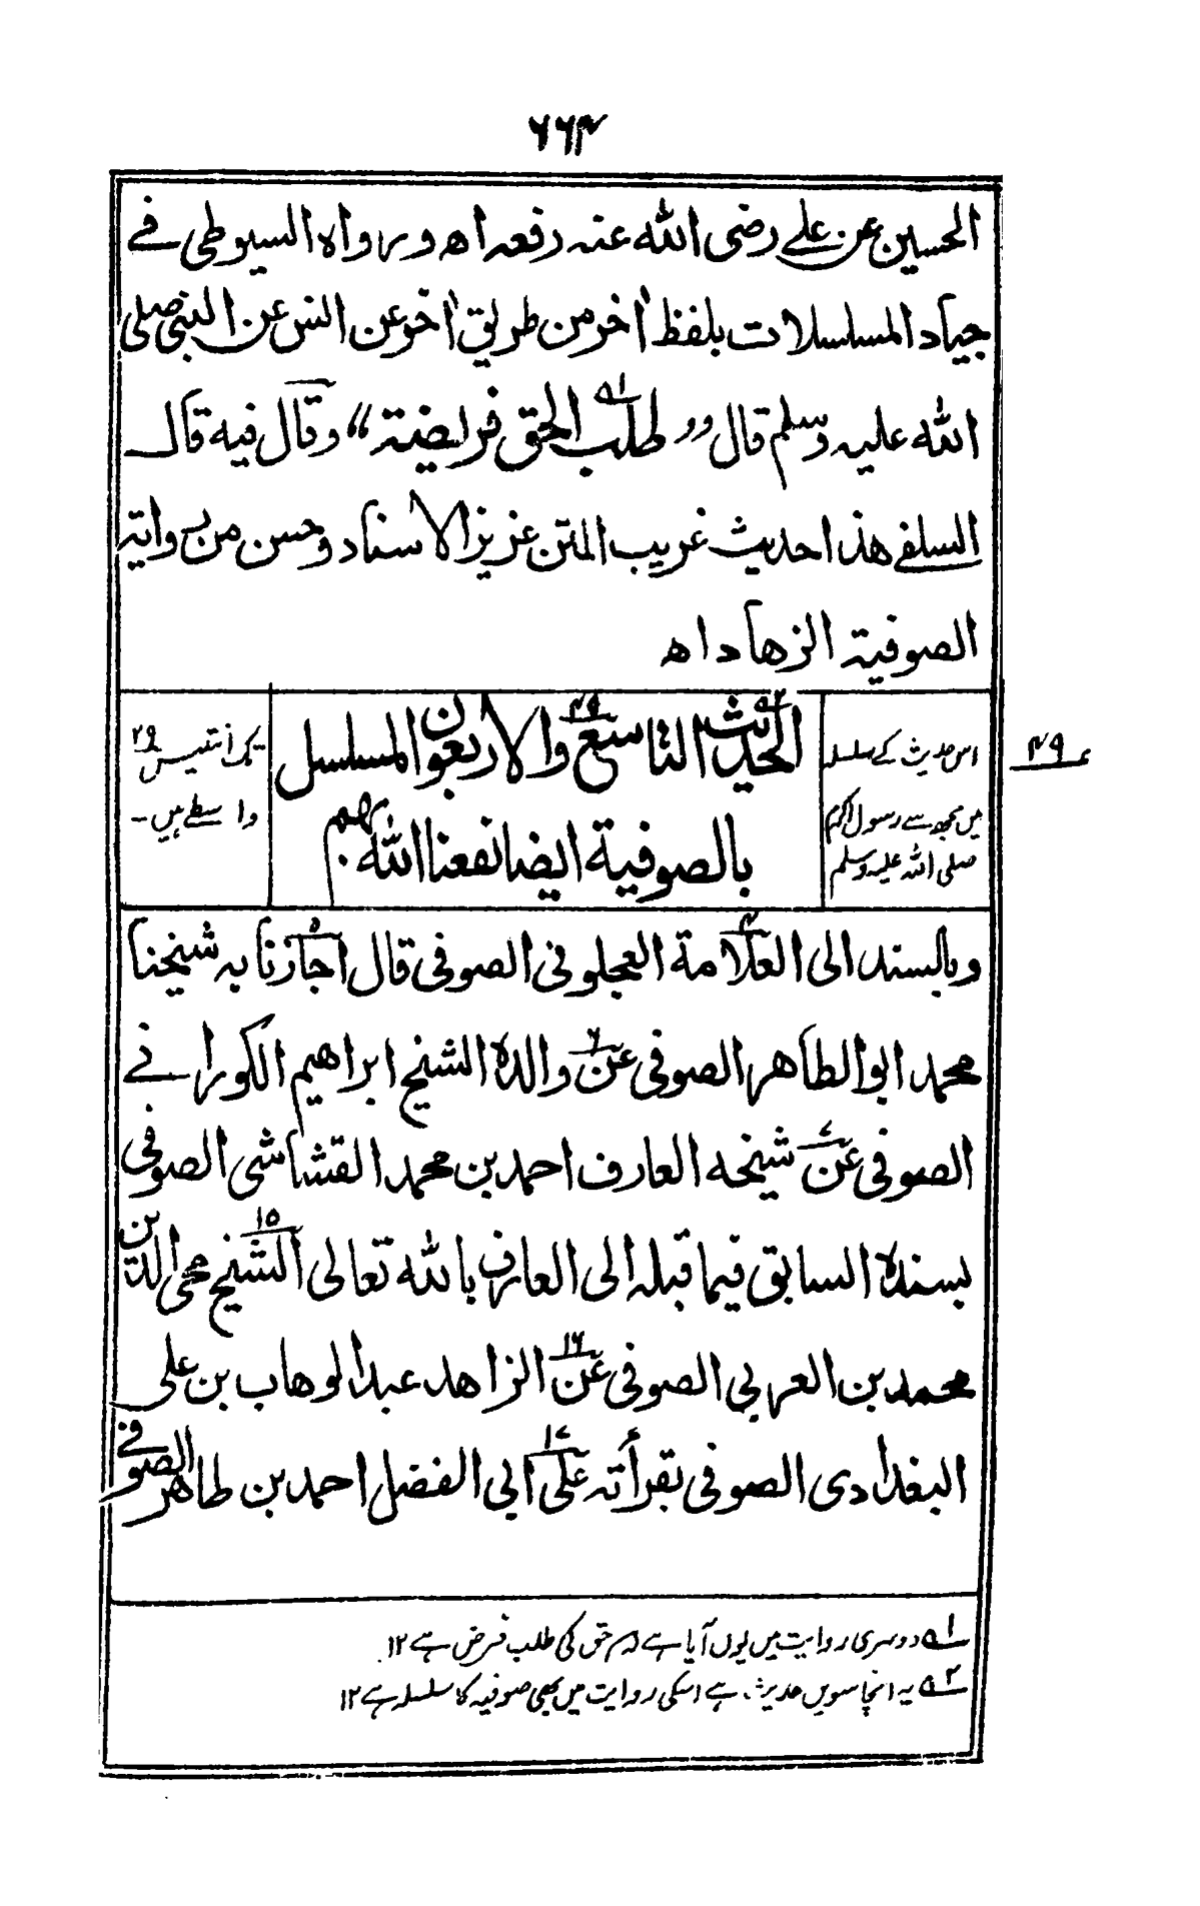 ۶۶۴
الحسين عن علی رضی الله عنه رفعه اھ ورواه السيوطی فے
جياد المسلسلات بلفظ اٰخر من طريق اٰخر عن انس عن النبی صلی
الله عليه وسلم قال ”طلب الحق فريضة“ وقال فيه قال
السلفے هذا حديث غريب المتن عزيز الاسناد وحسن من رواية
الصوفية الزهاد اھ
اس حدیث کے سلسلہ
میں مجھ سے رسول اکرم
صلی اللہ علیہ وسلم
الحديث التاسع والاربعون المسلسل
بالصوفية ايضا نفعنا الله بهم
تک انتیس ۲۹
واسطے ہیں۔
۴۹
وبالسند الی العلامة العجلونی الصوفی قال اجازنا به شيخنا
محمد ابو الطاهر الصوفی عن والده الشيخ ابراهيم الكورانے
الصوفی عن شيخه العارف احمد بن محمد القشاشی الصوفی
بسنده السابق فيما قبله الی العارف بالله تعالی الشيخ محی الدين
محمد بن العربي الصوفی عن الزاهد عبد الوهاب بن علی
البغدادی الصوفی بقرأته علی ابی الفضل احمد بن طاهر الصوفے
۱؎ دوسری روایت میں یوں آیا ہے کہ حق کی طلب فرض ہے ۱۲
۲؎ یہ انچاسویں حدیث ہے اسکی روایت میں بھی صوفیہ کا سلسلہ ہے ۱۲